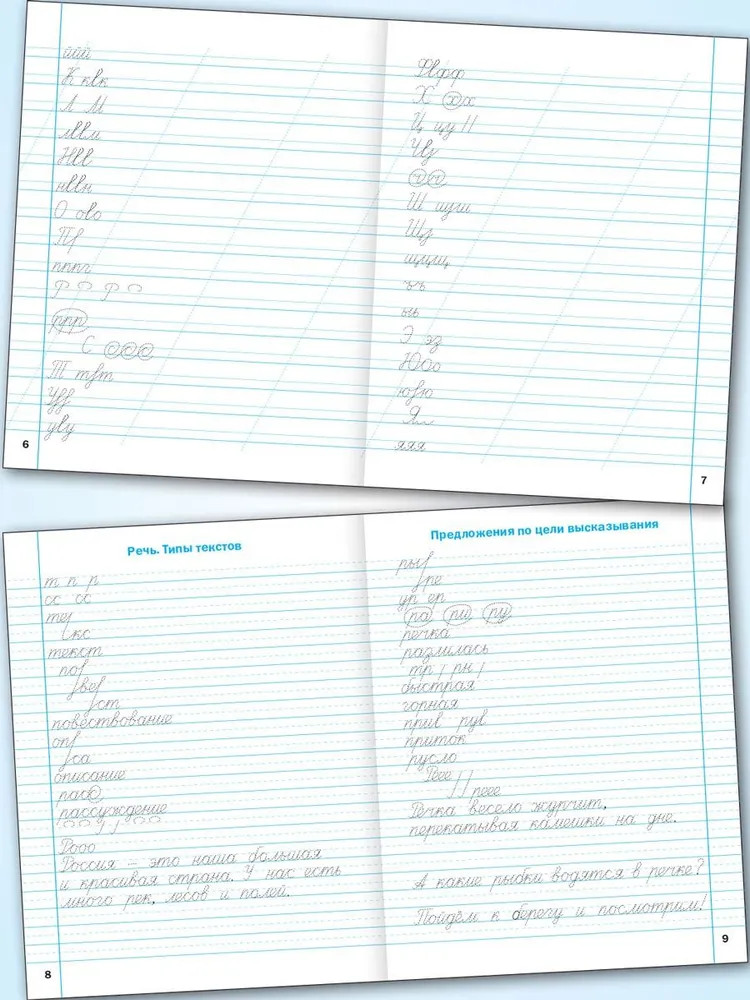 ййй
К квк
Л М
мввм
Нвв
нввн
О ово
пппг
ррр
С ссс
Т твт
уву
6
Фвфф
Х хх
Ц цц
Ш шш
щщщ
ъъ
ыь
Э эз
Ююо
ююю
яяя
7
Речь. Типы текстов
т п р
сс сс
тек
кс
текст
пов
вес
ст
повествование
оп
са
описание
расс
рассуждение
Рооо
Россия – это наша большая
и красивая страна. У нас есть
много рек, лесов и полей.
8
Предложения по цели высказывания
ре
ур ер
ра рю ру
речка
разлилась
тр рн
быстрая
горная
прив рув
приток
русло
Реее
реее
Речка весело журчит,
перекатывая камешки на дне.
А какие рыбки водятся в речке?
Пойдём к берегу и посмотрим!
9